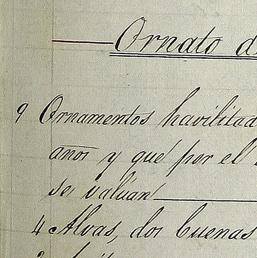 Ornato d
9 Ornamentos havilitad
años y que por el
se valuan
4 Alvas, dos buenas